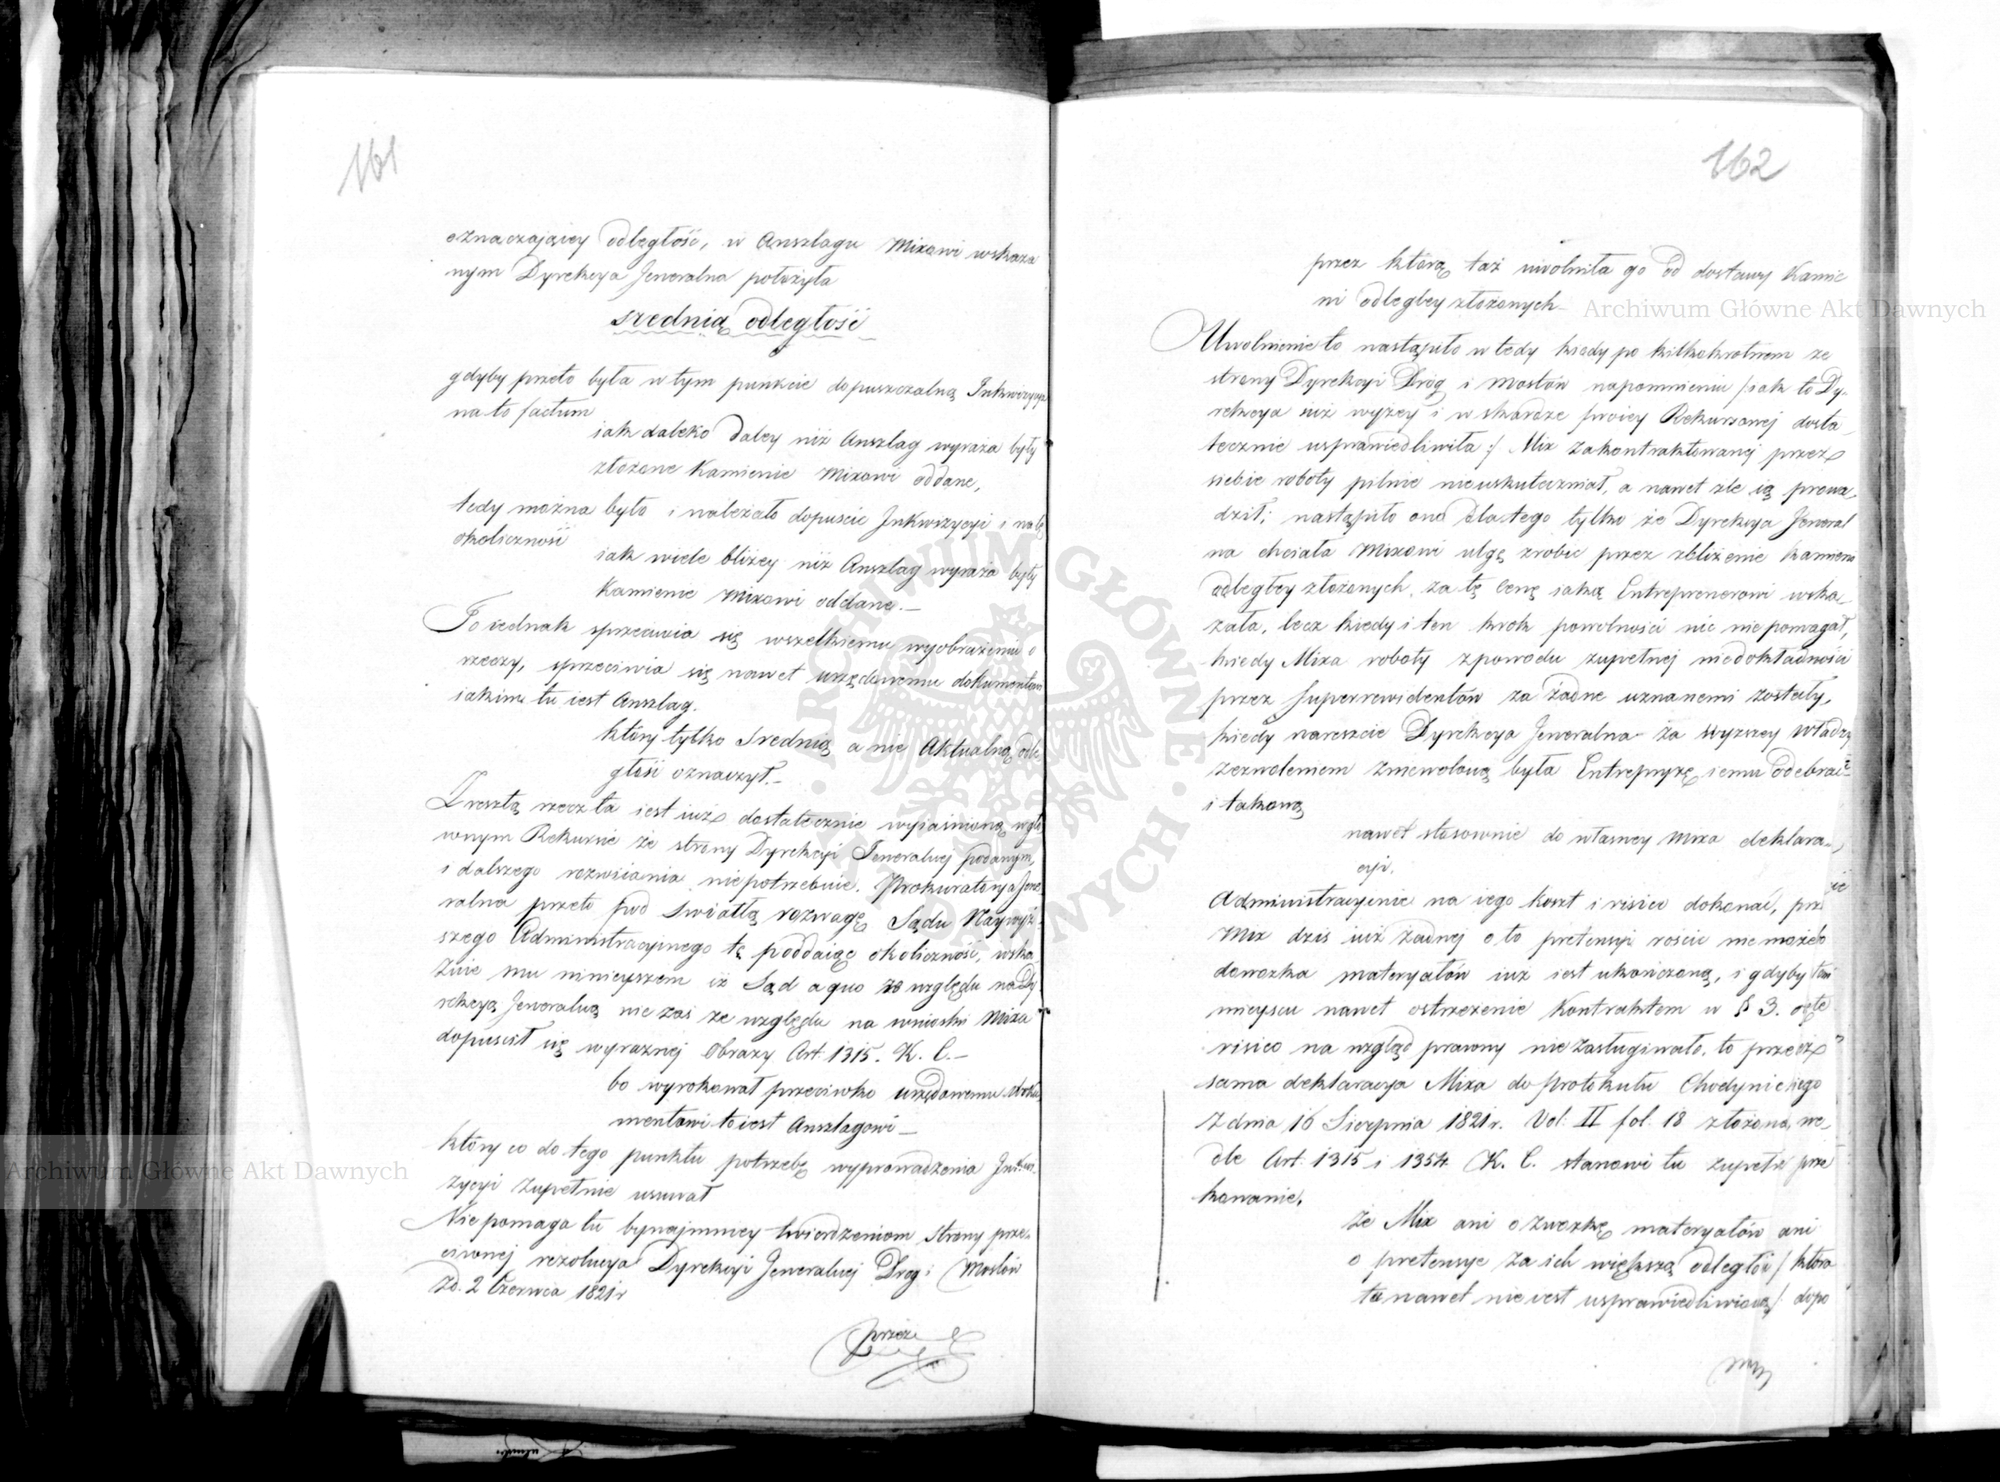 161
oznaczaiącey odległość, w Anszlagu Mixowi wskaza
nym Dyrekcya Jeneralna położyła
srednią odległość
gdyby przeto była w tym punkcie dopuszczalną Inkwizycya
na to factum
iak daleko daley niż Anszlag wyraża były
złożone Kamienie Mixowi oddane,
tedy można było i należało dopuścić Inkwizycyi i na tę
okoliczność
iak wiele bliżey niż Anszlag wyraża były
Kamienie Mixowi oddane.—
To iednak sprzeciwia się wszelkiemu wyobrażeniu o
rzeczy, sprzeciwia się nawet urzędowemu dokumentowi
iakim tu iest Anszlag.
który tylko Srednią a nie Aktualną odle
głość oznaczył.—
Zresztą rzecz ta iest iuż dostatecznie wyiaśnioną w głó
wnym Rekursie ze strony Dyrekcyi Jeneralnej podanym,
i dalszego rozwiiania niepotrzebuie. Prokuratorya Jene
ralna przeto pod Swiatłą rozwagę Sądu Naywyż
szego Administracyinego tę poddaiąc okoliczność, wska
żuie mu ninieyszem iż Sąd a quo ze względu na Dy
rekcyą Jeneralną nie zaś ze względu na wnioski Mixa
dopuścił się wyraznej Obrazy Art. 1315. K. C.—
bo wyrokował przeciwko urzędowemu doku
mentowi to iest Anszlagowi—
który co do tego punktu potrzebę wyprowadzenia Inkwi
zycyi zupełnie usuwał
Nie pomaga tu bynajmniey twierdzeniom strony prze
ciwnej rezolucya Dyrekcyi Jeneralnej Dróg i Mostów
zd. 2 Czerwca 1821 r
przez
162
przez którą taż uwolniła go od dostawy Kamie
ni odległey złożonych—
Uwolnienie to nastąpiło wtedy kiedy po kilkokrotnem ze
strony Dyrekcyi Dróg i Mostów napomnieniu /: iak to Dy-
rekcya iuż wyżey i w skardze swoiey Rekursowej dosta
tecznie usprawiedliwiła :/ Mix zakontraktowanej przez
siebie roboty pilnie nieuskuteczniał, a nawet zle ią prowa
dził; nastąpiło ono dlatego tylko że Dyrekcya Jeneral
na chciała Mixowi ulgę zrobić przez zbliżenie kamieni
odległey złożonych, za tę cenę iaką Entreprenerowi wska
zała, lecz kiedy i ten krok powolności nic nie pomagał,
kiedy Mixa roboty zpowodu zupełnej niedokładności
przez Superrewidentów za żadne uznanemi zostały,
kiedy nareszcie Dyrekcya Jeneralna za wyższey Władzy
zezwoleniem zniewoloną była Entrepryzę iemu odebrać
i takową
nawet stosownie do własney Mixa deklara-
cyi,
Administracyinie na iego koszt i risico dokonać, prze
Mix dziś iuż żadnej o to pretensyi rościć nie może bo
dowozka materyałów iuż iest ukończoną, i gdyby tu w
mieyscu nawet ostrzeżenie Kontraktem w § 3. o te
risico na wzgląd prawny nie zasługiwało, to przecież
sama deklaracya Mixa do protokułu Chodynickiego
z dnia 16 Sierpnia 1821 r. Vol. II fol. 18 złożona, we-
dle Art. 1315 i 1354 K. C. stanowi tu zupełne prze
konanie,
że Mix ani o zwozkę materyałów ani
o pretensye za ich większą odległość /: która
tu nawet nie iest usprawiedliwioną :/ dopo